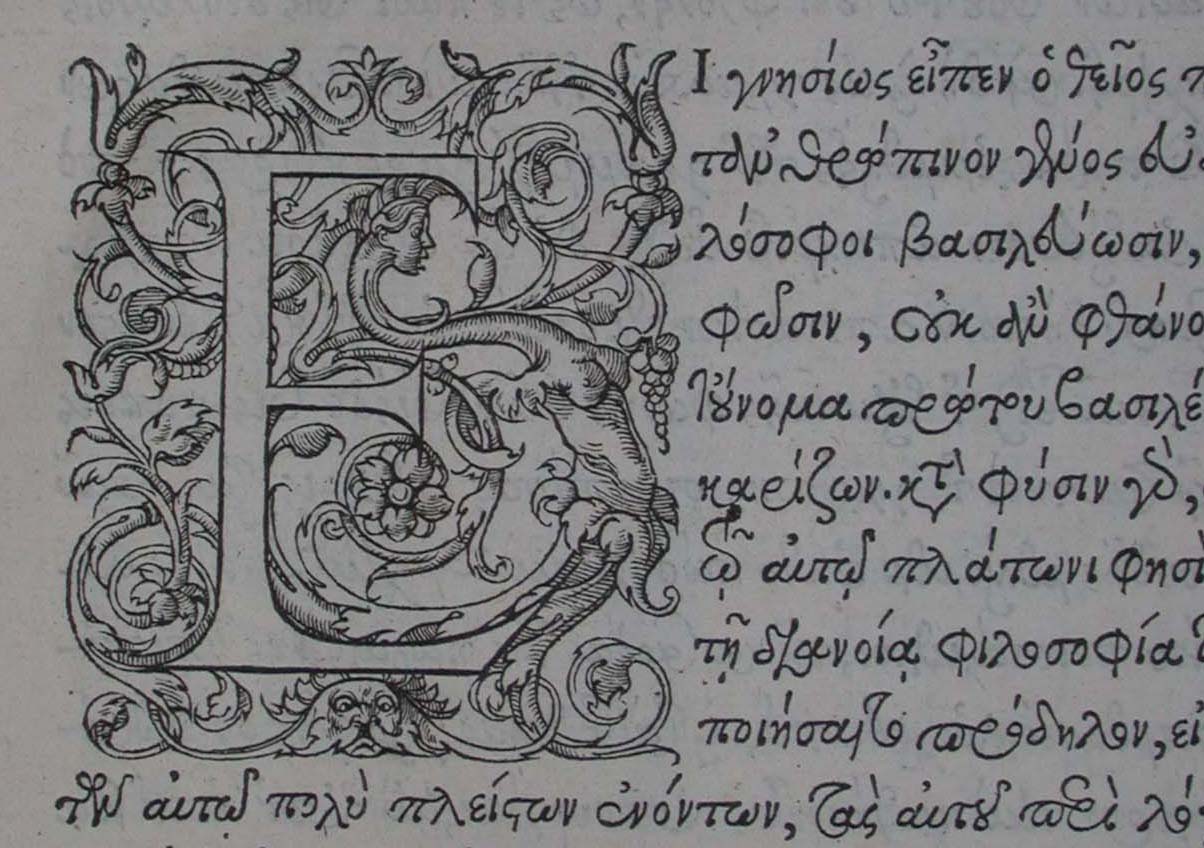 ΕΙ γνησίως εἶπεν ὁ θεῖος π
τἀνθρώπινον γένος εὐ
λόσοφοι βασιλεύωσιν,
φῶσιν, οὐκ ἂν φθάνο
τοὔνομα πρώτου βασιλέ
καρίζων. κτ̀ φύσιν γδ̀,
ᾧ αὐτῷ πλάτωνι φησὶ
τῇ διανοίᾳ φιλοσοφία
ποιήσαιτο πρόδηλον, εἰ
τῶν αὐτῷ πολὺ πλείστων ἐνόντων, τὰς αὐτοῦ περὶ λό